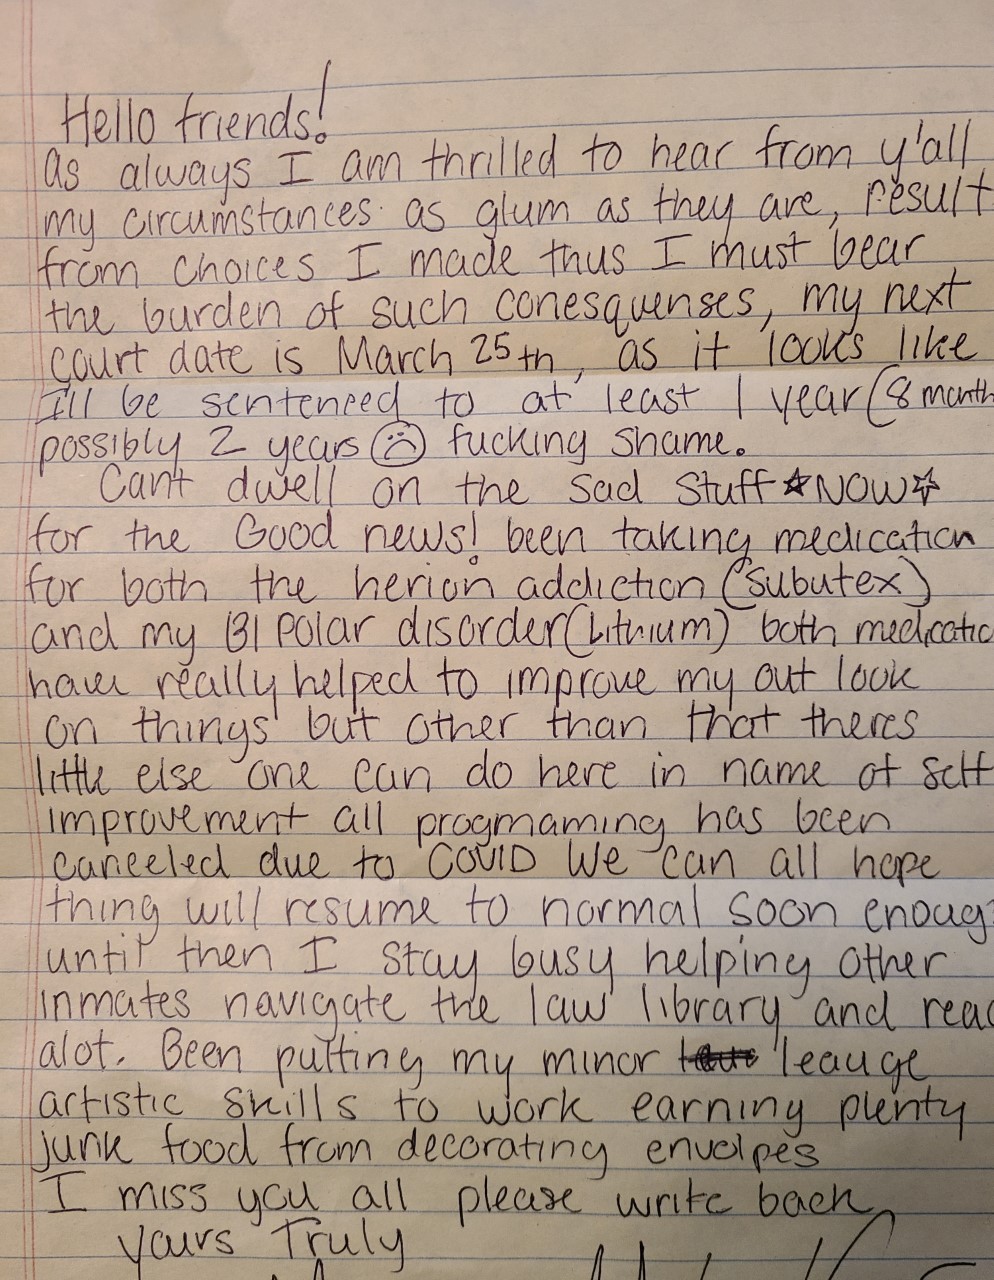 Hello friends!
as always I am thrilled to hear from y'all
my circumstances as glum as they are, result
from choices I made thus I must bear
the burden of such conesquenses, my next
court date is March 25th, as it looks like
I'll be sentenced to at least 1 year (8 month
possibly 2 years ☹ fucking shame.
Cant dwell on the sad stuff ☆NOW☆
for the Good news! been taking medication
for both the herion addiction (subutex)
and my BI polar disorder (Lithium) both medicatio
have really helped to improve my out look
on things but other than that theres
little else one can do here in name of self
improvement all progmaming has been
canceled due to COVID We can all hope
thing will resume to normal soon enoug
until then I stay busy helping other
inmates navigate the law library and read
alot. Been putting my minor leauge
artistic skills to work earning plenty
junk food from decorating envolpes
I miss you all please write back
yours Truly